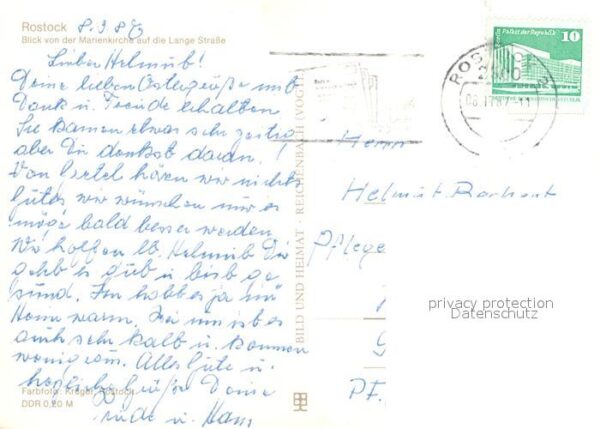 Rostock 8.3.87
Blick von der Marienkirche auf die Lange Straße
Lieber Helmut!
Deine lieben Ostergrüße mit
Dank u. Freude erhalten
Sie kamen etwas sehr zeitig
aber Du denkst daran.!
Von hören wir nichts
gutes wir wünschen nur es
möge bald besser werden
Wir hoffen lb. Helmut Dir
geht es gut u bist ge
sund. Ihr habt es ja im
Heim warm. Bei uns ist es
auch sehr kalt u. kommen
wenig raus. Alles Gute u.
herzliche Grüße Deine
u. Hans
Farbfoto: Krüger, Rostock
DDR 0,20 M
BILD UND HEIMAT · REICHENBACH (VOGTL)
Berlin Palast der Republik
10
ROSTOCK
Herrn
Helmut
Pflege
privacy protection
Datenschutz
PF.